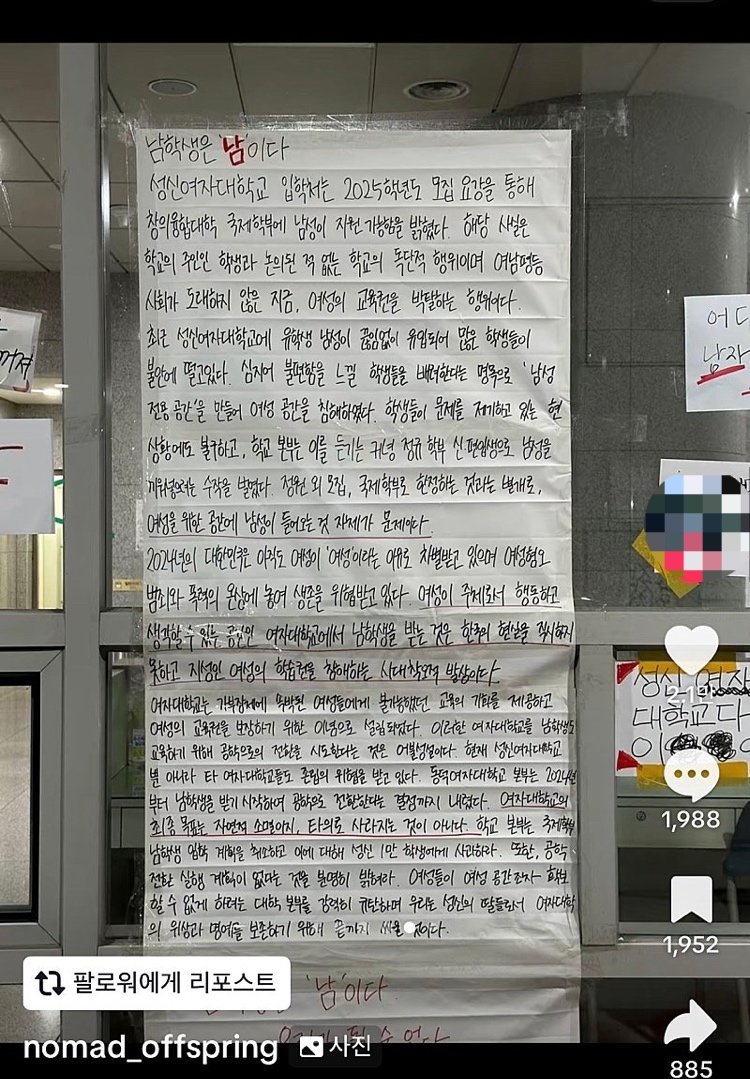 남학생은 '남'이다
성신여자대학교 입학처는 2025학년도 모집 요강을 통해
창의융합대학 국제학부에 남성이 지원 가능함을 밝혔다. 해당 사실은
학교의 주인인 학생과 논의된 적 없는 학교의 독단적 행위이며 여남평등
사회가 도래하지 않은 지금, 여성의 교육권을 박탈하는 행위다.
최근 성신여자대학교에 유학생 남성이 끊임없이 유입되어 많은 학생들이
불안에 떨고있다. 심지어 불편함을 느낄 학생들을 배려한다는 명목으로 '남성
전용 공간'을 만들어 여성 공간을 침해하였다. 학생들이 문제를 제기하고 있는 현
상황에도 불구하고, 학교 본부는 이를 듣기는 커녕 정규 학부 신·편입생으로 남성을
끼워넣으려는 수작을 벌였다. 정원 외 모집, 국제학부로 한정하는 것과는 별개로,
여성을 위한 공간에 남성이 들어오는 것 자체가 문제이다.
2024년의 대한민국은 아직도 여성이 '여성'이라는 이유로 차별받고 있으며 여성혐오
범죄와 폭력의 온상에 놓여 생존을 위협받고 있다. 여성이 주체로서 행동하고
생각할 수 있는 공간인 여자대학교에서 남학생을 받는 것은 한국의 현실을 직시하지
못하고 지성인 여성의 학습권을 침해하는 시대착오적 발상이다.
여자대학교는 가부장제에 속박된 여성들에게 불가능했던 교육의 기회를 제공하고
여성의 교육권을 보장하기 위한 이념으로 설립되었다. 이러한 여자대학교를 남학생도
교육하기 위해 공학으로의 전환을 시도한다는 것은 어불성설이다. 현재 성신여자대학교
뿐 아니라 타 여자대학교들도 존립의 위협을 받고 있다. 동덕여자대학교 본부는 2024년
부터 남학생을 받기 시작하여 공학으로 전환한다는 결정까지 내렸다. 여자대학교의
최종 목표는 자연적 소멸이지, 타의로 사라지는 것이 아니다. 학교 본부는 국제학부
남학생 입학 계획을 취소하고 이에 대해 성신 1만 학생에게 사과하라. 또한, 공학
전환 실행 계획이 없다는 것을 분명히 밝혀라. 여성들이 여성 공간조차 확보
할 수 없게 하려는 대학 본부를 강력히 규탄하며 우리는 성신의 딸들로서 여자대학
의 위상과 명예를 보존하기 위해 끝까지 싸울 것이다.
'남'이다.
어디
남자
꺼져
성신여자
대학교다
이
2.1만
1,988
1,952
885
팔로워에게 리포스트
nomad_offspring
사진